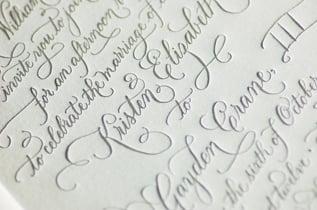 William
invite you to jo
for an afternoon of
to celebrate the marriage of
Kristen Elisabeth
to
Gayden Crane, III
the sixth of October
twelve